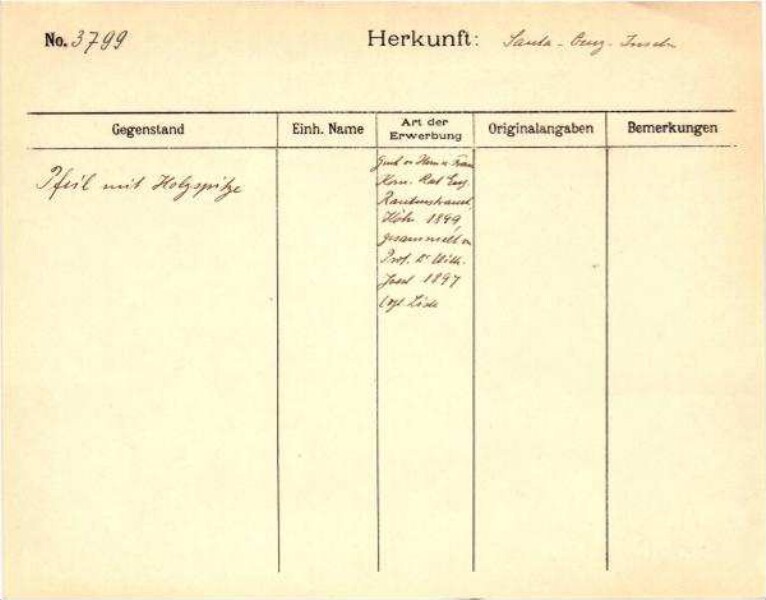 No. 3799 Herkunft: Santa-Cruz-Inseln
Gegenstand
Einh. Name
Art der
Erwerbung
Originalangaben
Bemerkungen
Pfeil mit Holzspitze
Gesch. v. Herrn u. Frau
Kom. Rat Eug.
Rautenstrauch,
Köln 1899,
gesammelt v.
Prof. Dr Wilh.
Joest 1897